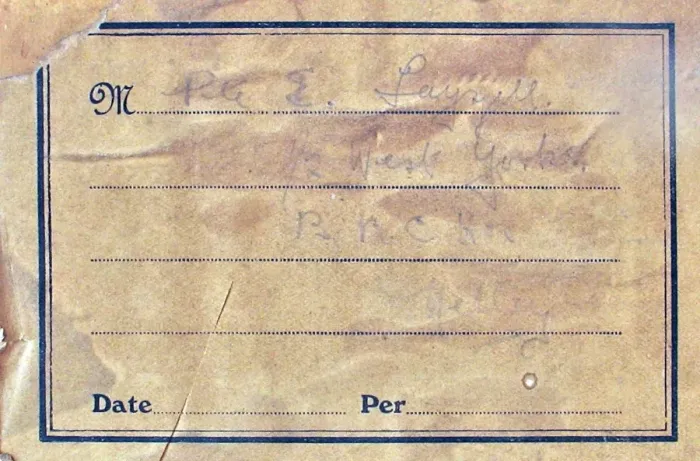 M Pte E. Layzell.
1/2 West Yorks
B. R. C. Hos
Date Per